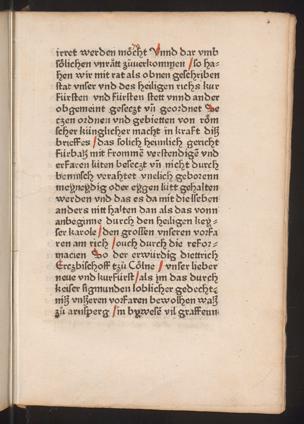 irret werden möcht Vnnd dar vmb
sölichen vnrätt züuerkommen /so ha-
hen wir mit rat als obnen geschriben
stat vnser vnd des heiligen richs kur
fürsten vnd fürsten stett vnnd ander
obgemeint gesetzt vn̄ geordnet Se
czen ordnen vnd gebietten von röm
scher künglicher macht in kraft diß
brieffes /das solich heimlich gericht
fürbaß mit fromm̄e verstendigē vnd
erfarē lüten besetzt vn̄ nicht durch
bennisch verahtet vnelich geborenn
meyneydig oder eygen lütt gehalten
werden vnd das es da mit die selben
anders nit haltan dan als das vonn
anbeginne durch den heiligen key-
ser karole /den grossen vnseren vorfa
ren am rich /ouch durch die refor-
macien So der erwürdig diettrich
Erczbischoff tzü Cölne /vnser lieber
neue vnd kurfürst /als jm das durch
keiser sigmunden loblicher gedecht-
niß vnßeren vorfaren bewolhen waß
zü arnsperg /in bywesē vil graffenn